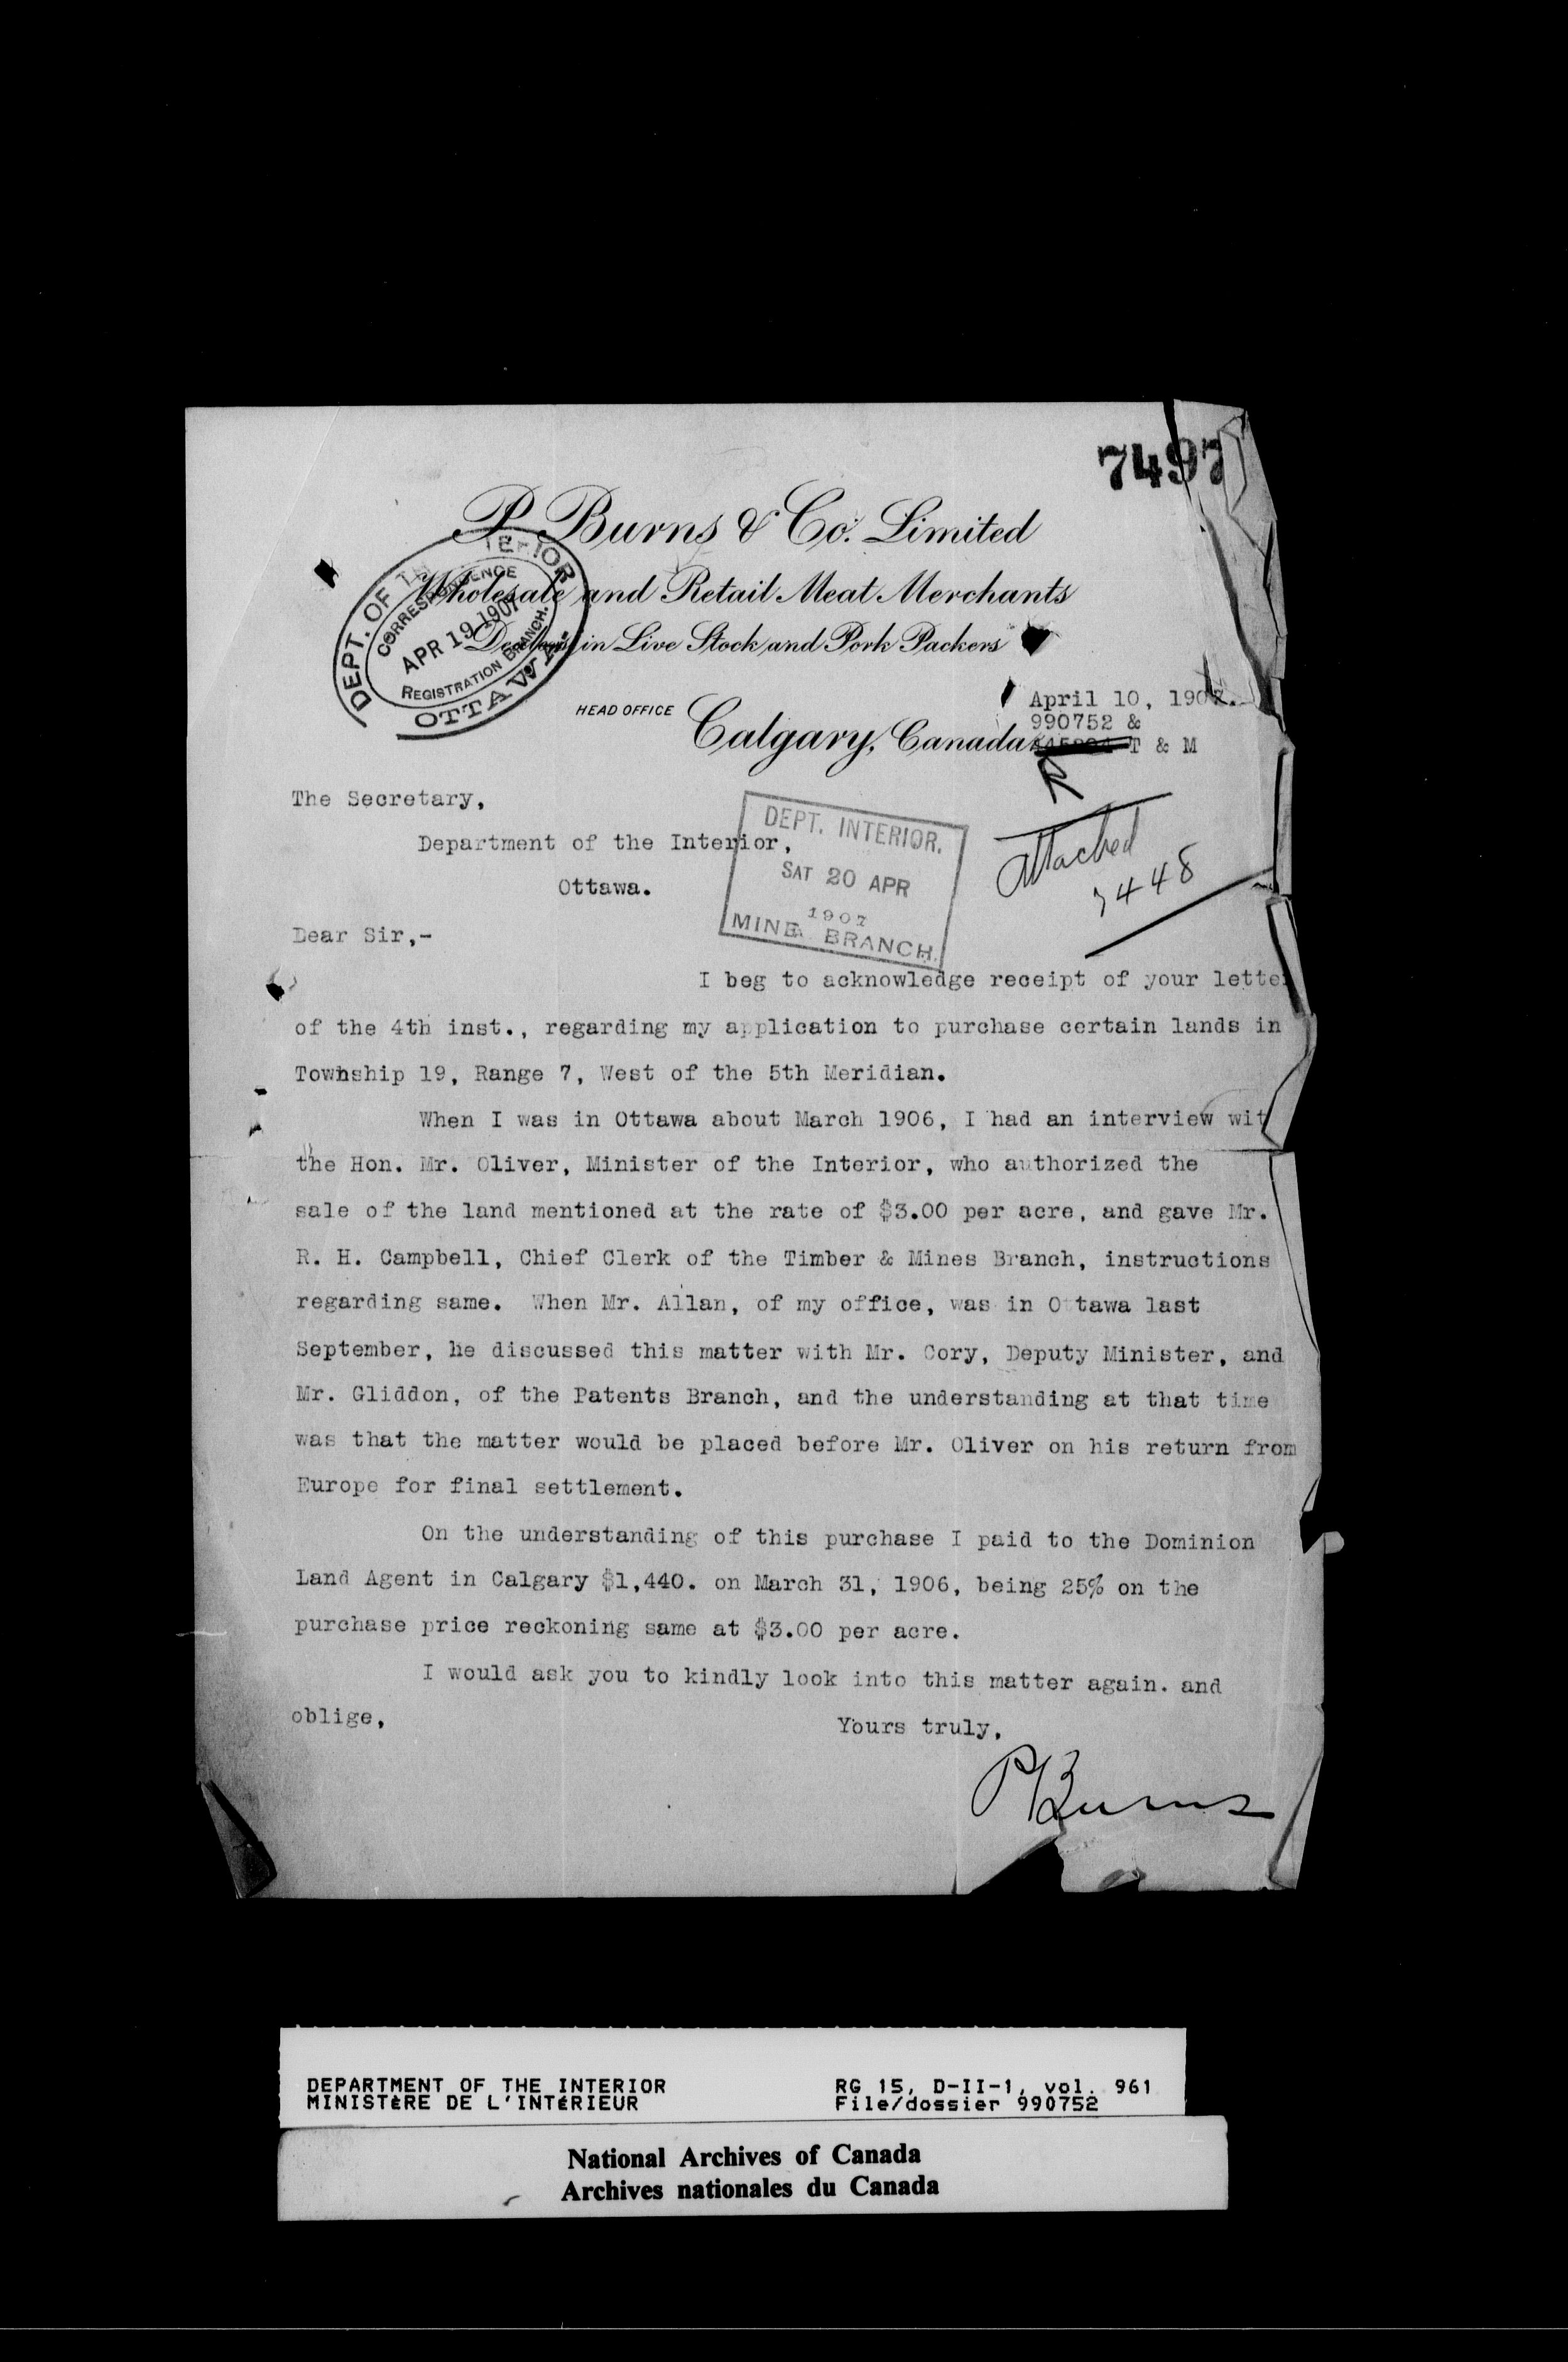 7497
P. Burns & Co. Limited
Wholesale and Retail Meat Merchants
Dealers in Live Stock and Pork Packers
DEPT. OF THE INTERIOR
CORRESPONDENCE
APR 19 1907
REGISTRATION BRANCH.
OTTAWA.
HEAD OFFICE
Calgary, Canada
April 10, 1907.
990752 &
T & M
The Secretary,
Department of the Interior,
Ottawa.
DEPT. INTERIOR.
SAT 20 APR
1907
MINE BRANCH.
Attached
7448
Dear Sir,-
I beg to acknowledge receipt of your letter
of the 4th inst., regarding my application to purchase certain lands in
Township 19, Range 7, West of the 5th Meridian.
When I was in Ottawa about March 1906, I had an interview wit
the Hon. Mr. Oliver, Minister of the Interior, who authorized the
sale of the land mentioned at the rate of $3.00 per acre, and gave Mr.
R. H. Campbell, Chief Clerk of the Timber & Mines Branch, instructions
regarding same. When Mr. Allan, of my office, was in Ottawa last
September, he discussed this matter with Mr. Cory, Deputy Minister, and
Mr. Gliddon, of the Patents Branch, and the understanding at that time
was that the matter would be placed before Mr. Oliver on his return from
Europe for final settlement.
On the understanding of this purchase I paid to the Dominion
Land Agent in Calgary $1,440. on March 31, 1906, being 25% on the
purchase price reckoning same at $3.00 per acre.
I would ask you to kindly look into this matter again. and
oblige,
Yours truly,
P Burns
DEPARTMENT OF THE INTERIOR
MINISTÈRE DE L'INTÉRIEUR
RG 15, D-II-1, vol. 961
File/dossier 990752
National Archives of Canada
Archives nationales du Canada